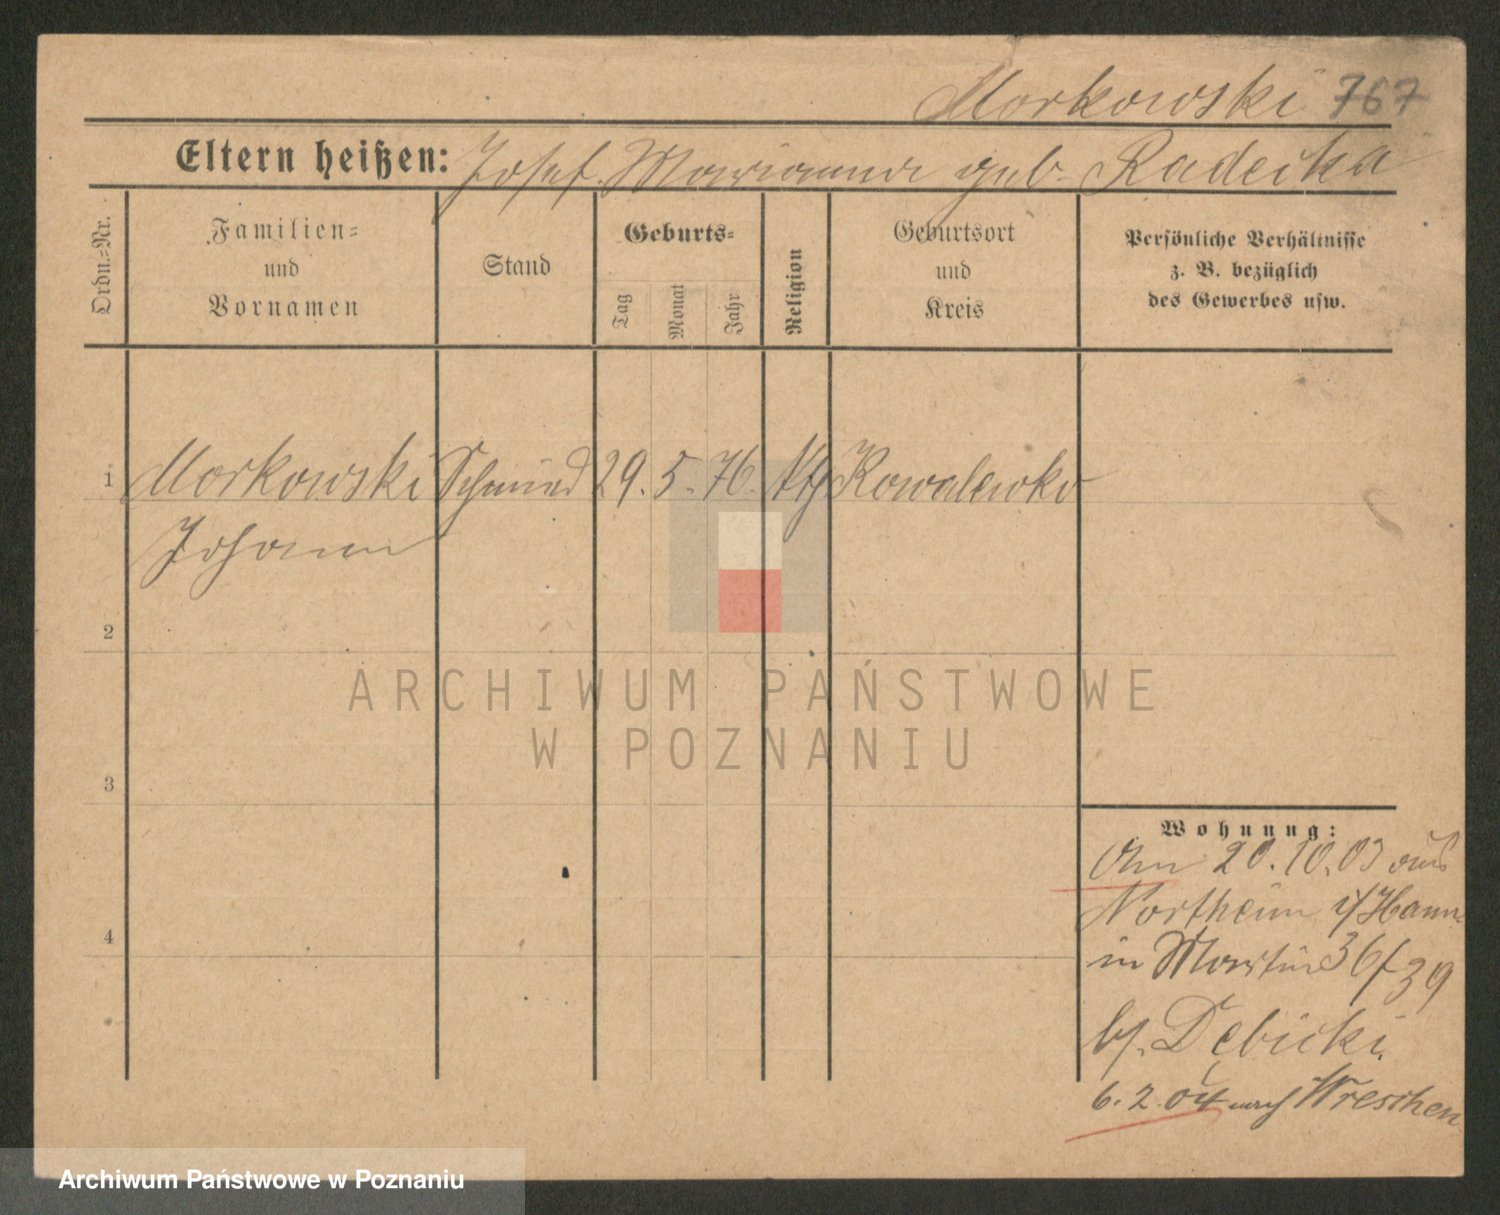 Morkowski 767
Eltern heißen: Josef. Marianna geb. Radecka
Ordn.=Nr.
Familien=
und
Vornamen
Stand
Geburts=
Tag
Monat
Jahr
Religion
Geburtsort
und
Kreis
Persönliche Verhältnisse
z. B. bezüglich
des Gewerbes usw.
1 Morkowski Schmied 29. 5. 76. Kowalewko
Johann
2
3
4
Wohnung:
Am 20.10.03 aus
Northeim i/Hann.
in 36/39
b/. Dębicki.
6. 2. 04 nach Wreschen
ARCHIWUM PAŃSTWOWE
W POZNANIU
Archiwum Państwowe w Poznaniu